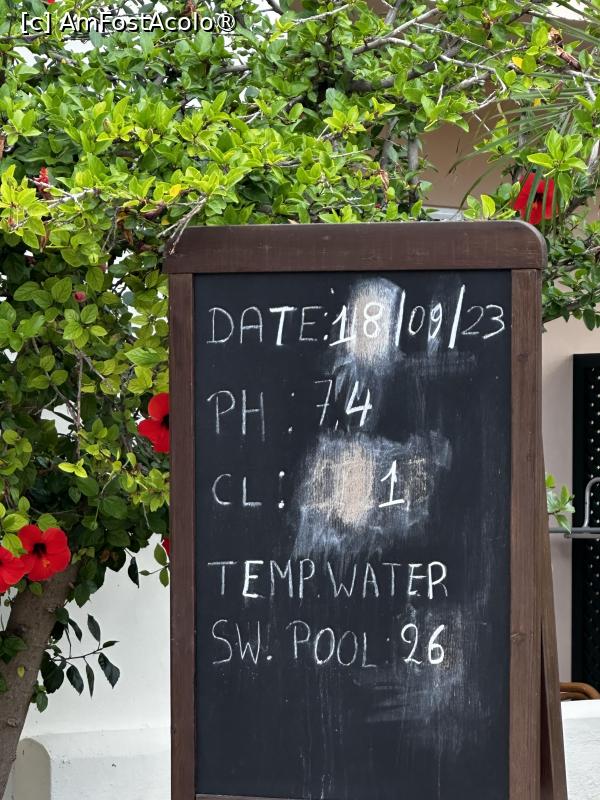 [c] AmFostAcolo®
DATE:18/09/23
PH : 7,4
CL: 1
TEMP.WATER
SW. POOL: 26